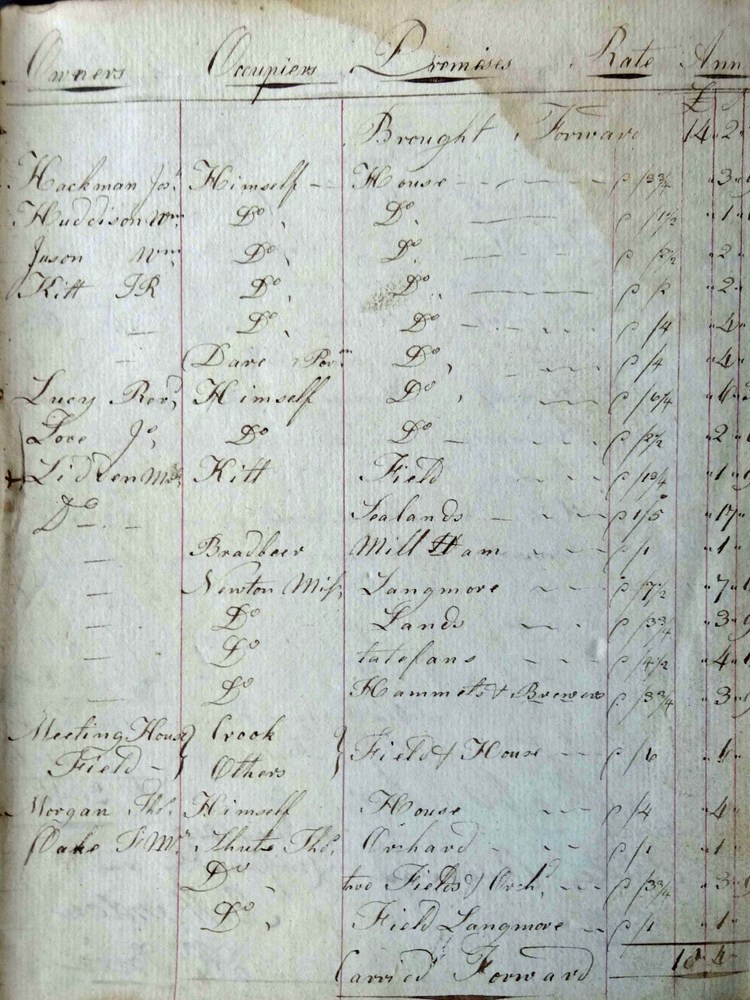 Owners Occupiers Premises Rate Ann
£
Brought Forward 14 " 2 "
Hackman Jos. Himself House p /3¾ " 3 "
Huddison Wm Do Do p /1½ " 1 "
Jason Wm Do Do p /2½ " 2 "
Kitt JR Do Do p /2 " 2 "
— Do Do p /4 " 4 "
— Dare Do p /4 " 4 "
Lucy Revd Himself Do p /6¼ " 6 "
Jo Do Do p /2½ " 2 "
Lidden Kitt Field " 1 "
Do Sealands p 1/5 " 17 "
— Bradbeer Mill Ham p /1 " 1 "
— Newton Miss Langmore p /7½ " 7 "
— Do Lands p /3¾ " 3 "
— Do tatepans p /4½ " 4 "
— Do Hammets & Brewers p /3¾ " 3 "
Meeting House } Crook } Field & House p /6 " 6 "
Field } Others
Morgan Thos. Himself House p /4 " 4 "
Oake Shute Thos. Orchard p /1 " 1 "
Do two Fields & Orchd p /3¾ " 3 "
Do Field Langmore p /1 " 1 "
Carried Forward 18 " 4 "